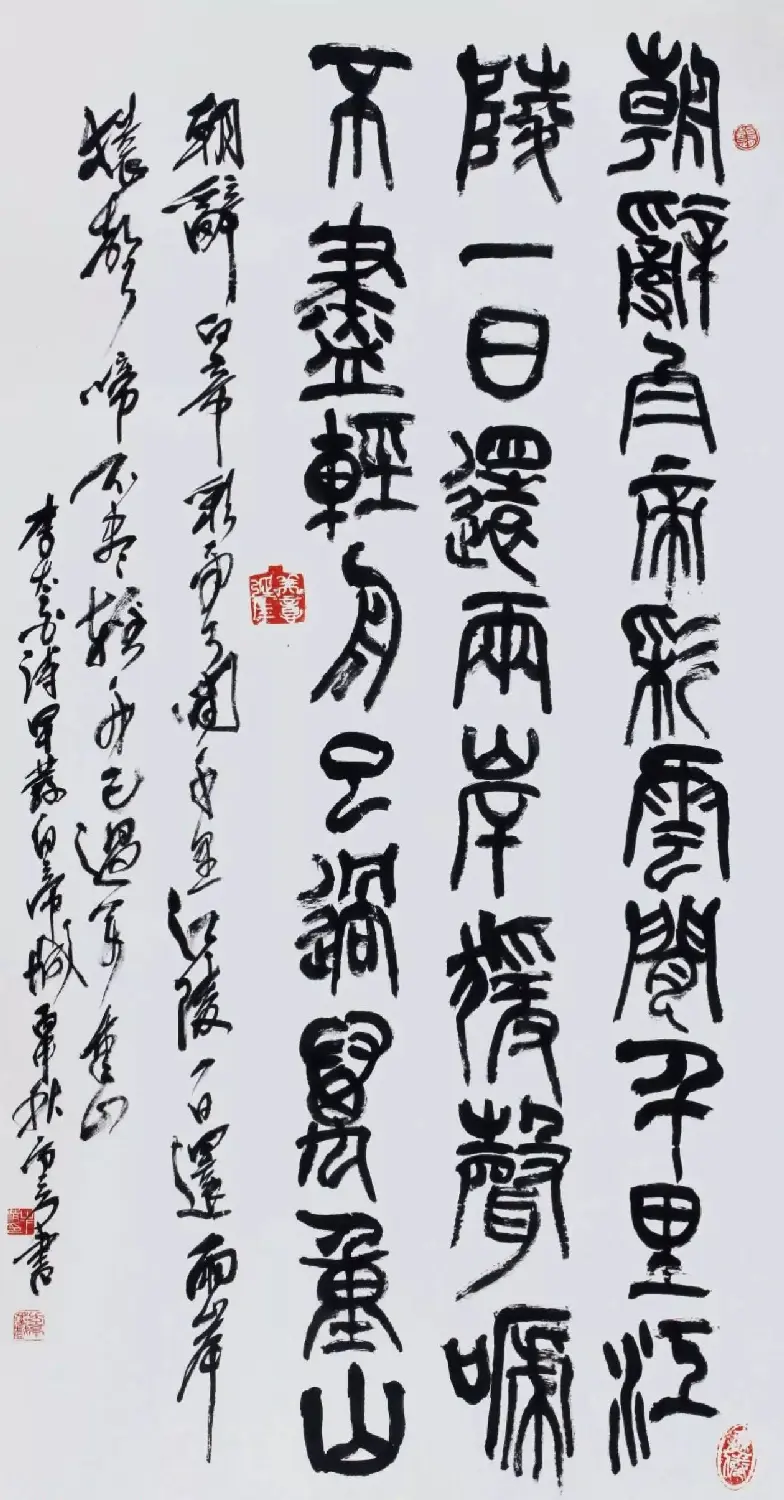 朝辭白帝彩雲間千里江
陵一日還兩岸猨聲嗁
不盡輕舟已過萬重山
美意延年
朝辭白帝彩雲間千里江陵一日還兩岸
猿聲啼不盡輕舟已過萬重山
李太白詩早發白帝城秋書